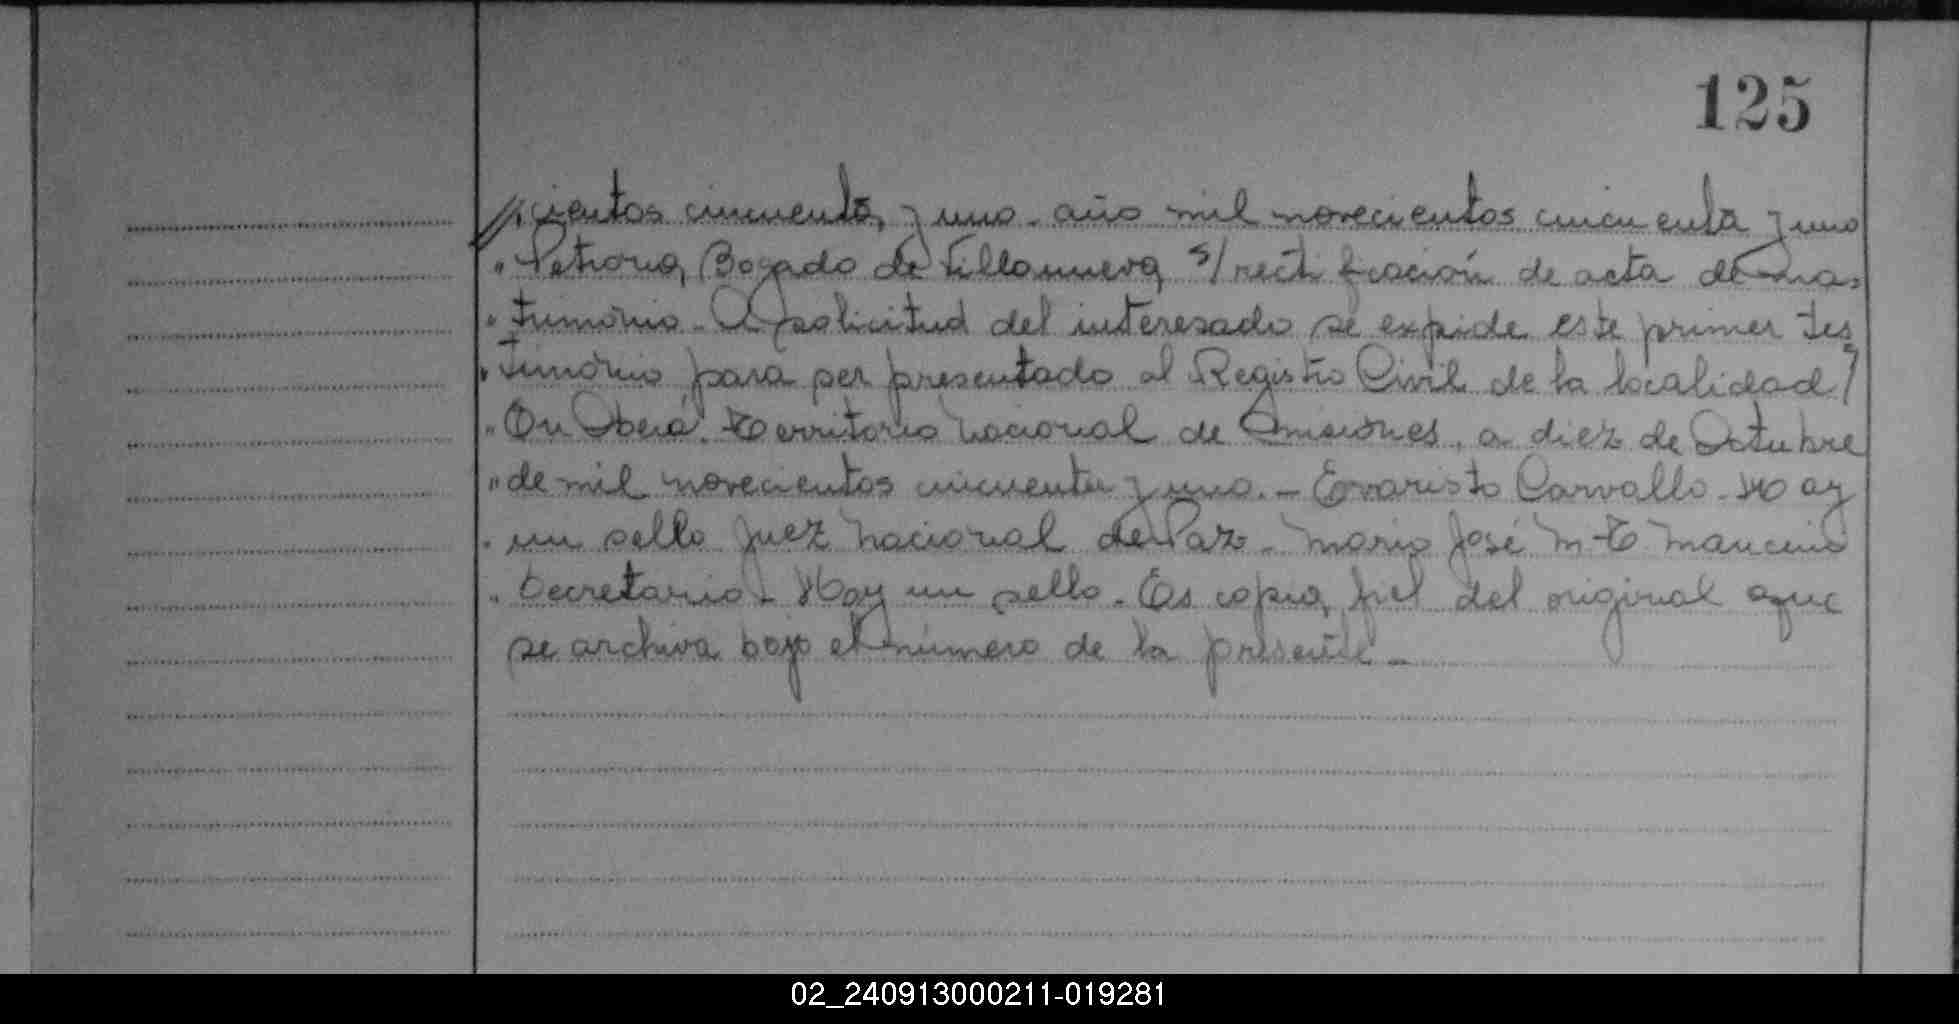 125
//cientos cincuenta, y uno. año mil novecientos cincuenta y uno
" Petrona, Bogado de Villanueva, s/ rectificación de acta de ma-
" trimonio. A solicitud del interesado se expide este primer tes
" timonio para ser presentado al Registro Civil de la localidad
" En Oberá. Territorio Nacional de Misiones, a diez de Octubre
" de mil novecientos cincuenta y uno. - Evaristo Carvallo. Hay
" un sello Juez Nacional de Paz. Mario José M. T. Mancini
" Secretario. Hay un sello. Es copia, fiel del original que
se archiva bajo el número de la presente. -
02_240913000211-019281